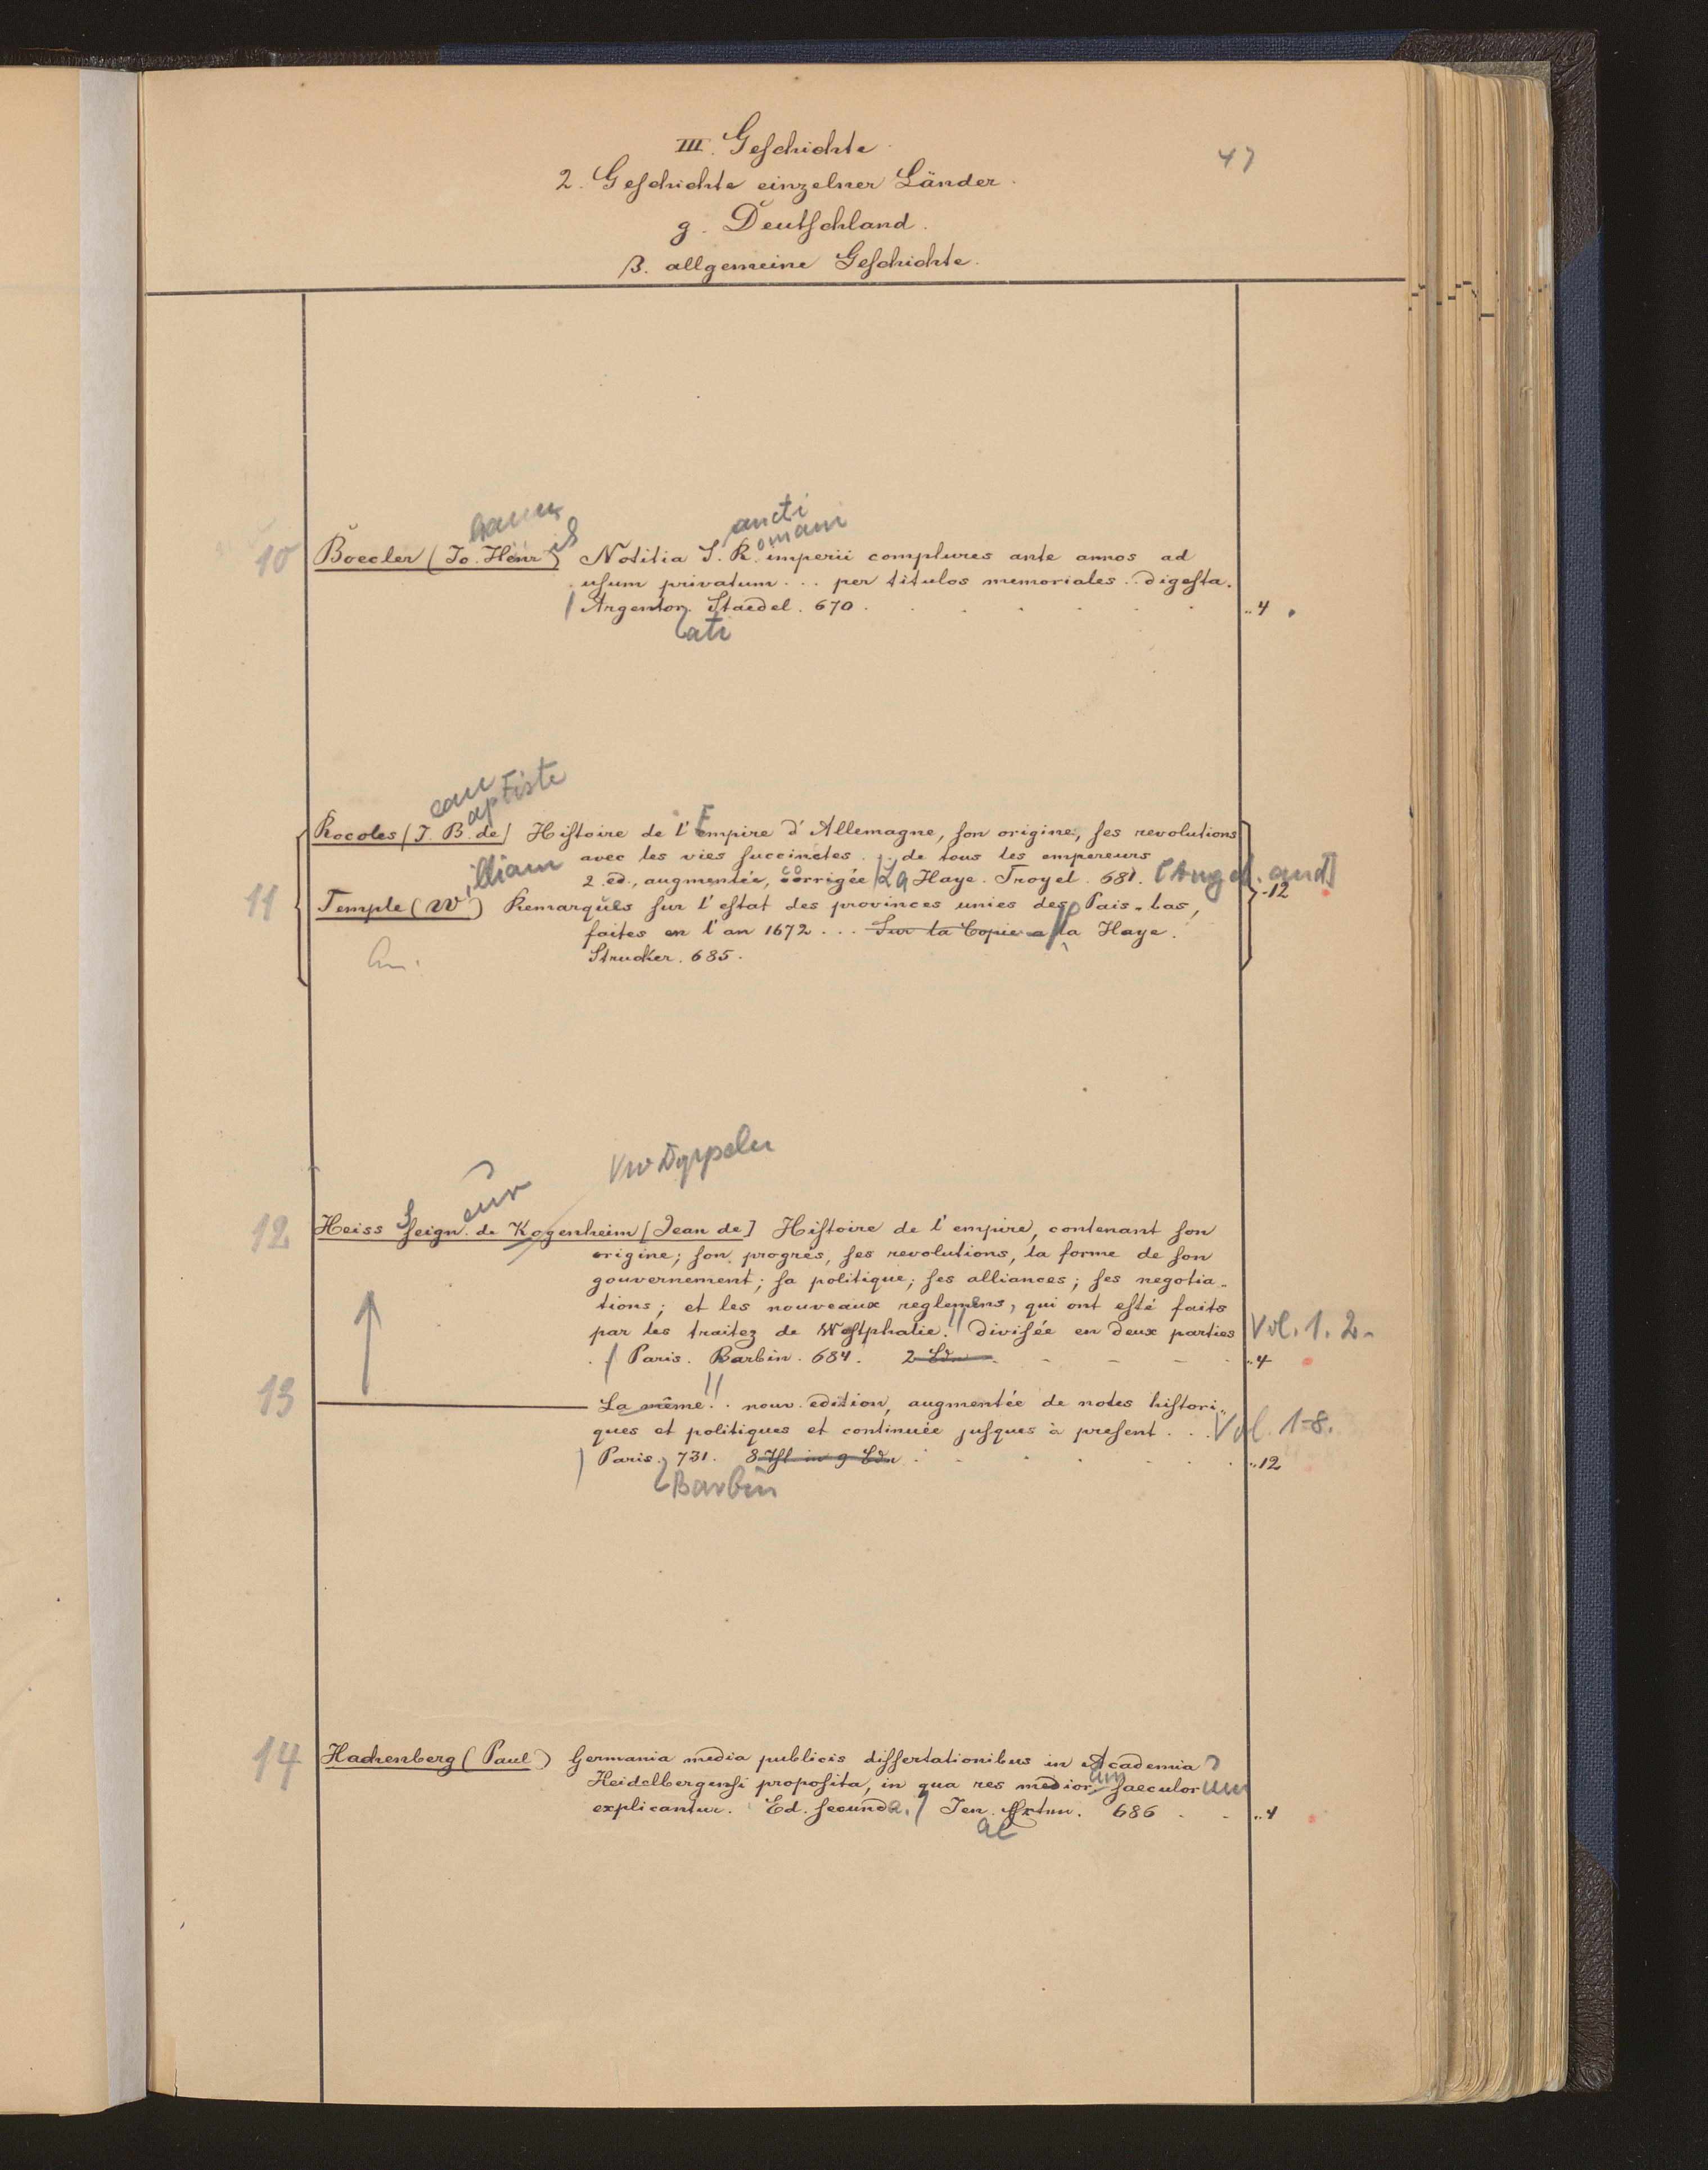 III. Geschichte
47
2. Geschichte einzelner Länder.
g. Deutschland.
β. allgemeine Geschichte.
annes
ancti
omani
10 Boecler (Jo. Henr) Notitia S. R. imperii complures ante annos ad
usum privatum ... per titulos memoriales .. digesta.
Argentor. Staedel. 670 . . . . . . ..4
ati
ean
aptiste
Rocoles (J. B. de) Histoire de l'Empire d'Allemagne, son origine, ses revolutions
avec les vies succinctes ... de tous les empereurs
2. ed., augmentée, corrigée La Haye. Troyel. 681.
illiam
11 Temple (W) Remarques sur l'estat des provinces unies des Pais-bas, -12
faites en l'an 1672 ... Sur la Copie a la Haye.
Strucker. 685.
eur
12 Heiss Seign. de Kogenheim [Jean de] Histoire de l'empire, contenant son
origine; son progrés, ses revolutions, la forme de son
gouvernement; sa politique; ses alliances; ses negotia-
tions; et les nouveaux reglemens, qui ont esté faits
par les traitez de Westphalie. divisée en deux parties Vol. 1. 2.
Paris. Barbin. 684. 2 Bdn - - - - ..4
13 La même. nouv. edition, augmentée de notes histori-
ques et politiques et continuée jusques à present ... Vol. 1-8.
Paris. 731. 8 Thl in 9 Bdn . . . . . ..12
Barbin
14 Hachenberg (Paul) Germania media publicis dissertationibus in Academia
Heidelbergensi proposita, in qua res medior. saeculorum
um
explicantur. Ed. secunda. Jen. 686 - - ..4
ae